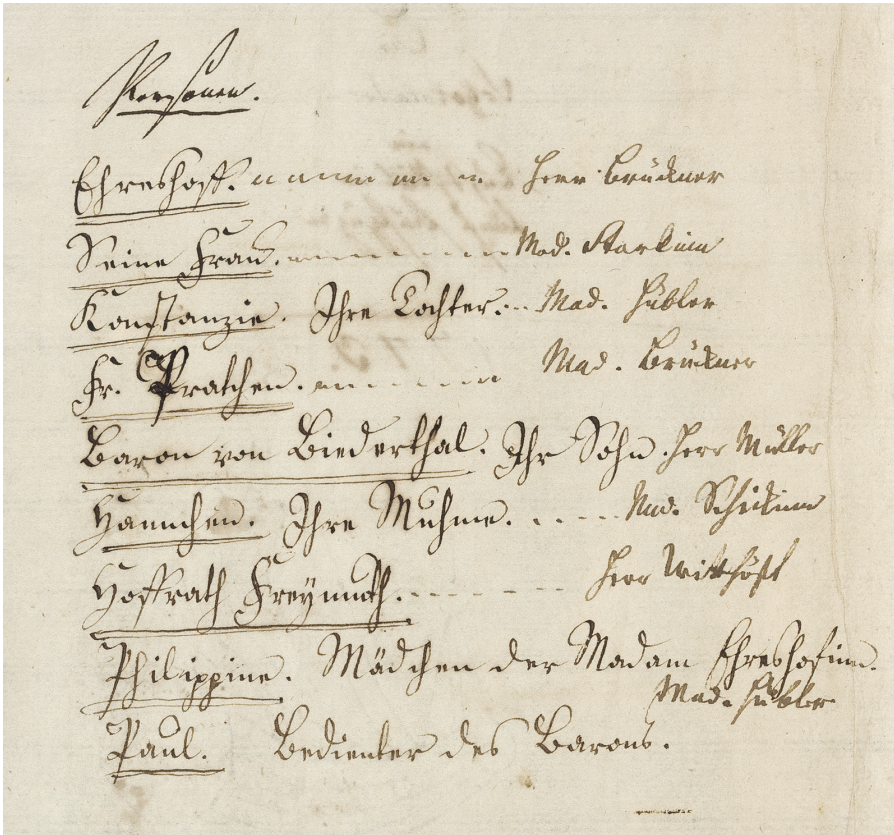 Personen.
Ehreshoff. Herr Brückner
Seine Frau. Mad. Starkinn
Konstanzie. Ihre Tochter. Mad. Hübler
Fr. Pratchen. Mad. Brückner
Baron von Biederthal. Ihr Sohn. Herr Müller
Hannchen. Ihre Muhme. Mad. Schickinn
Hoffrath Freymuth. Herr Witthöft
Philippine. Mädchen der Madam Ehreshofinn.
Mad. Hübler
Paul. Bedienter des Barons.